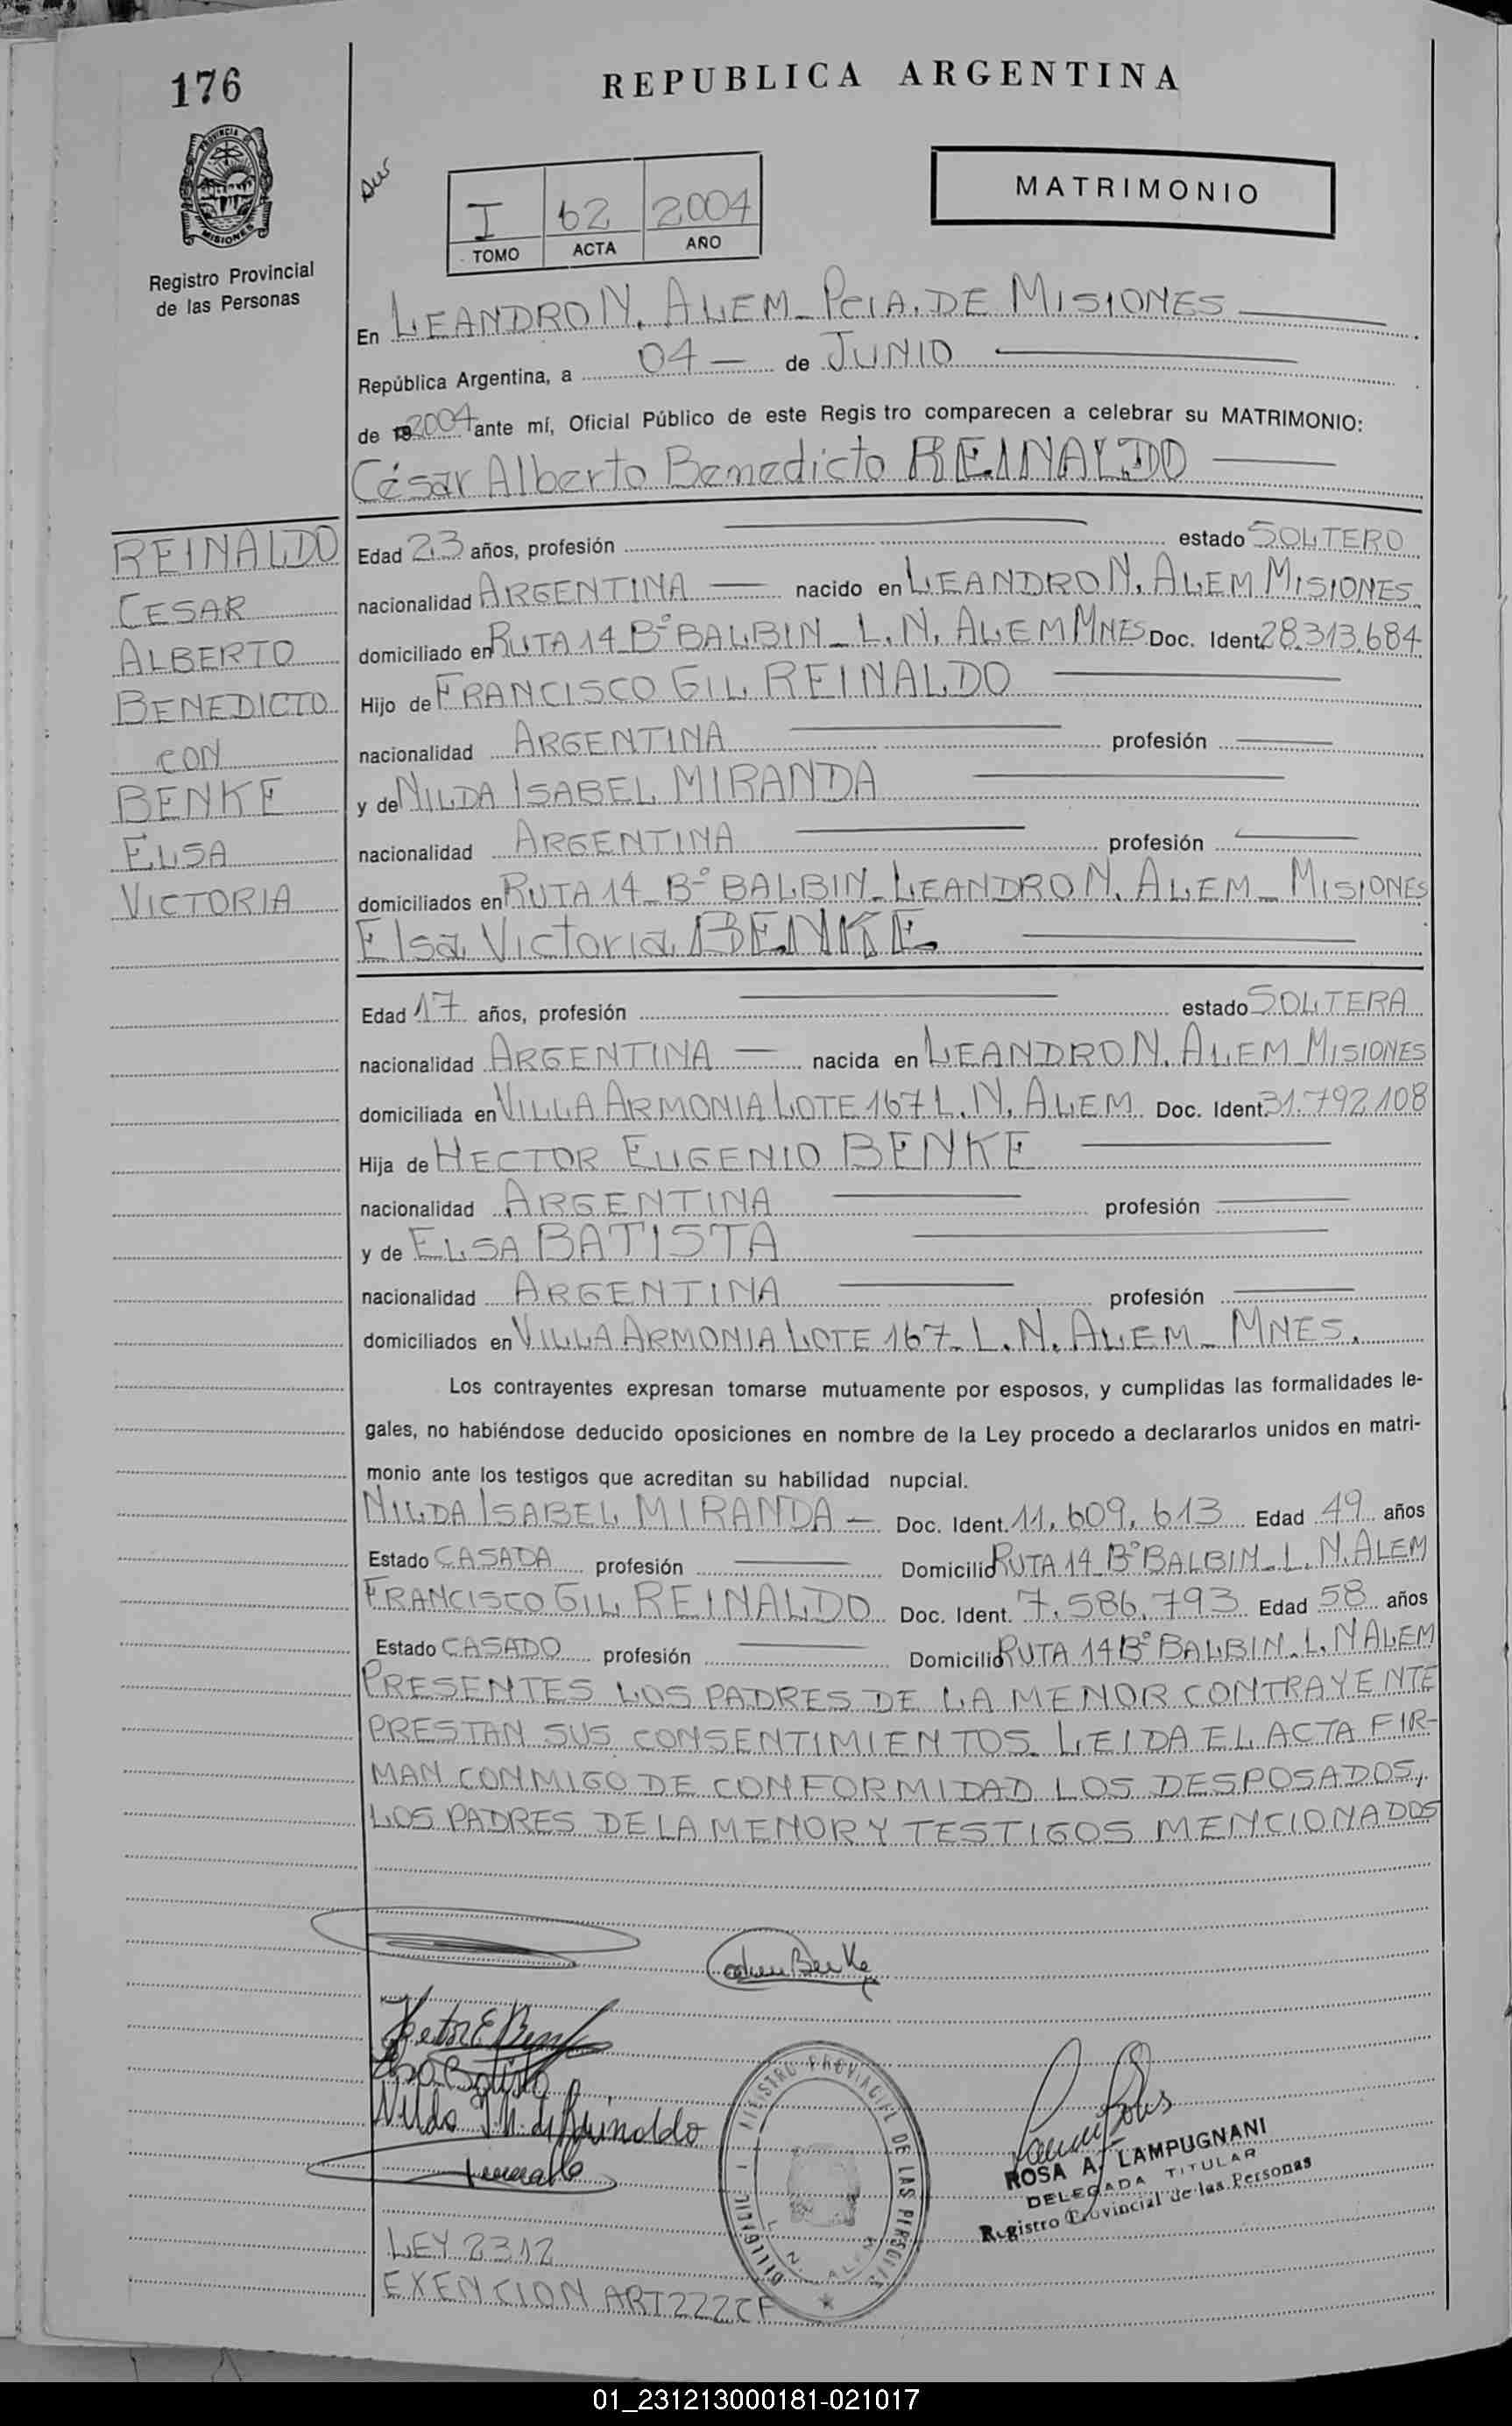 176
REPUBLICA ARGENTINA
PROVINCIA
MISIONES
Registro Provincial
de las Personas
I 62 2004
TOMO ACTA AÑO
MATRIMONIO
En LEANDRO N. ALEM - PCIA. DE MISIONES
República Argentina, a 04 - de JUNIO
de 192004 ante mí, Oficial Público de este Registro comparecen a celebrar su MATRIMONIO:
César Alberto Benedicto REINALDO
REINALDO
CESAR
ALBERTO
BENEDICTO
CON
BENKE
ELSA
VICTORIA
Edad 23 años, profesión estado SOLTERO
nacionalidad ARGENTINA nacido en LEANDRO N. ALEM MISIONES
domiciliado en RUTA 14 Bº BALBIN - L. N. ALEM MNES. Doc. Ident. 28.313.684
Hijo de FRANCISCO GIL REINALDO
nacionalidad ARGENTINA profesión
y de NILDA ISABEL MIRANDA
nacionalidad ARGENTINA profesión
domiciliados en RUTA 14 - Bº BALBIN - LEANDRO N. ALEM - MISIONES
Elsa Victoria BENKE
Edad 17 años, profesión estado SOLTERA
nacionalidad ARGENTINA nacida en LEANDRO N. ALEM - MISIONES
domiciliada en VILLA ARMONIA LOTE 167 L. N. ALEM Doc. Ident. 31.792.108
Hija de HECTOR EUGENIO BENKE
nacionalidad ARGENTINA profesión
y de ELSA BATISTA
nacionalidad ARGENTINA profesión
domiciliados en VILLA ARMONIA LOTE 167 - L. N. ALEM - MNES.
Los contrayentes expresan tomarse mutuamente por esposos, y cumplidas las formalidades le-
gales, no habiéndose deducido oposiciones en nombre de la Ley procedo a declararlos unidos en matri-
monio ante los testigos que acreditan su habilidad nupcial.
NILDA ISABEL MIRANDA - Doc. Ident. 11.609.613 Edad 49 años
Estado CASADA profesión Domicilio RUTA 14 Bº BALBIN - L. N. ALEM
FRANCISCO GIL REINALDO Doc. Ident. 7.586.793 Edad 58 años
Estado CASADO profesión Domicilio RUTA 14 Bº BALBIN - L. N ALEM
PRESENTES LOS PADRES DE LA MENOR CONTRAYENTE
PRESTAN SUS CONSENTIMIENTOS. LEIDA EL ACTA FIR-
MAN CONMIGO DE CONFORMIDAD LOS DESPOSADOS,
LOS PADRES DE LA MENOR Y TESTIGOS MENCIONADOS
Benke
Hector E Benke
Elsa Batista
Nilda I. M. de Reinaldo
REGISTRO PROVINCIAL DE LAS PERSONAS
L. N. ALEM
ROSA A. LAMPUGNANI
DELEGADA TITULAR
Registro Provincial de las Personas
LEY 2312
EXENCION ART 222 CF
01_231213000181-021017